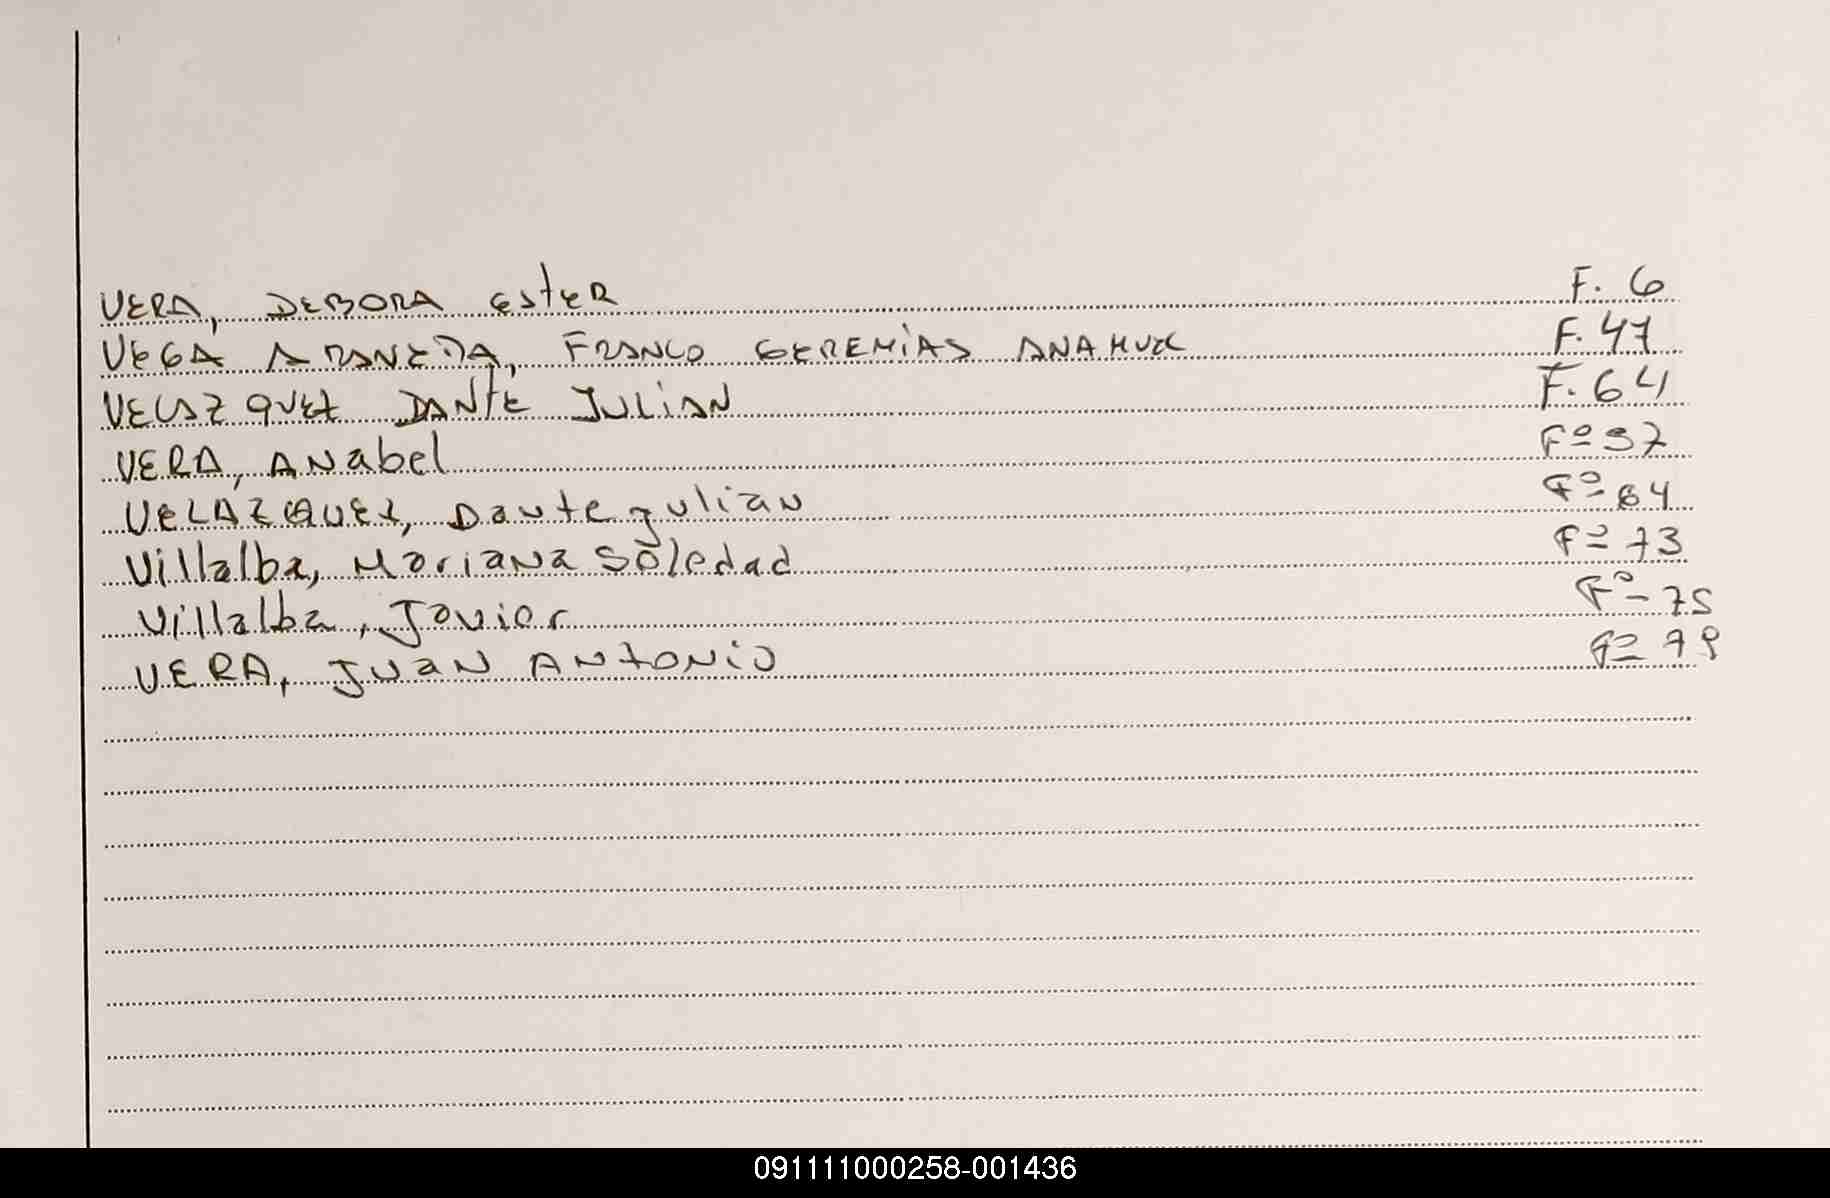 VERA, DEBORA ESTER F. 6
VEGA ARANEDA, FRANCO GEREMIAS ANAHUEL F. 47
VELAZQUEZ DANTE JULIAN F. 64
VERA, ANAbel Fº 37
VELAZQUEZ, Dante Julian Fº 64
Villalba, Mariana Soledad Fº 73
Villalba, Javier Fº 75
VERA, JUAN ANTONIO Fº 79
091111000258-001436